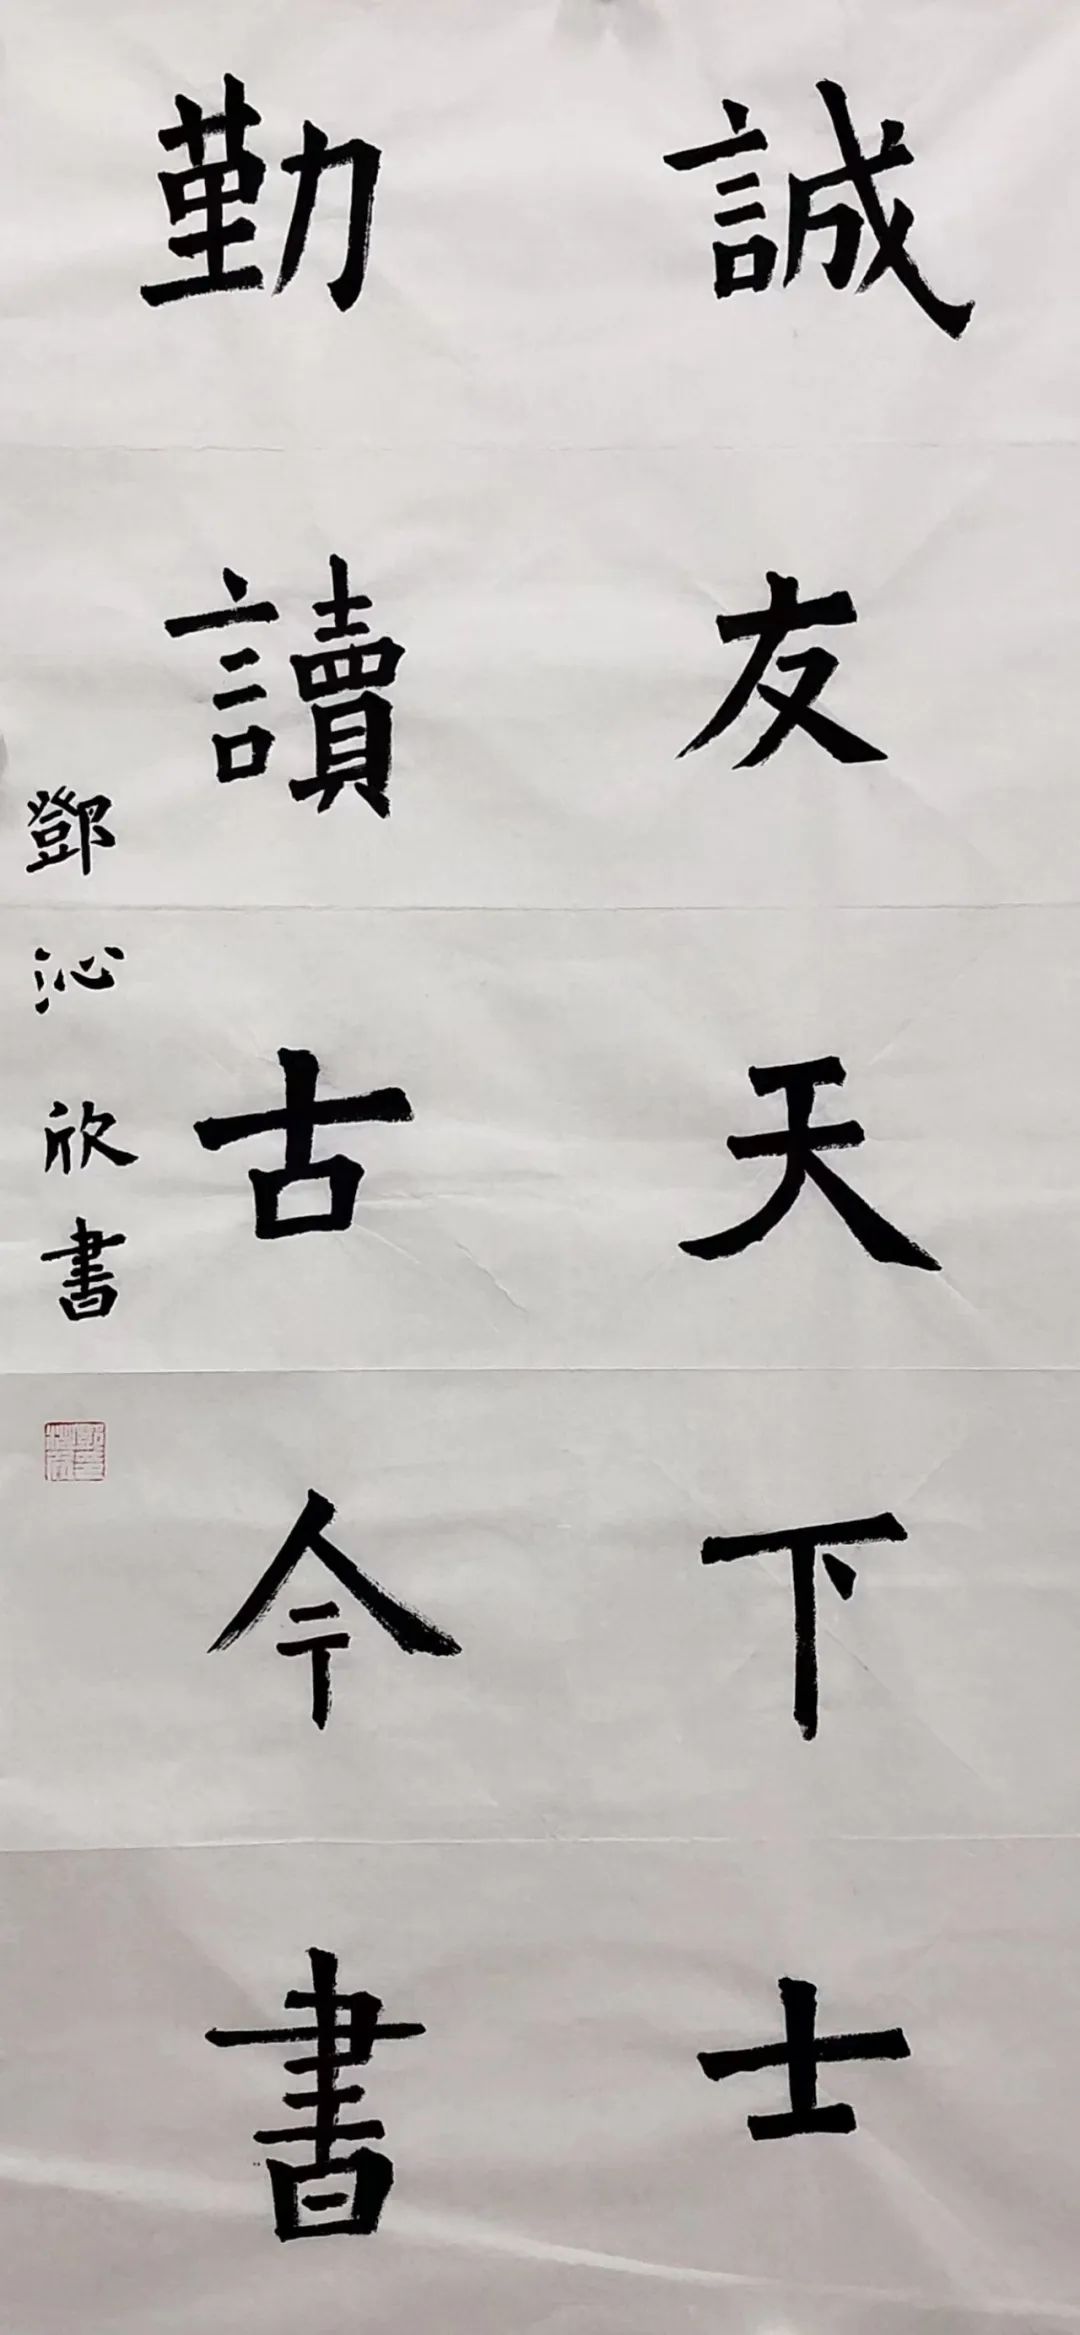 誠友天下士
勤讀古今書
鄧沁欣書